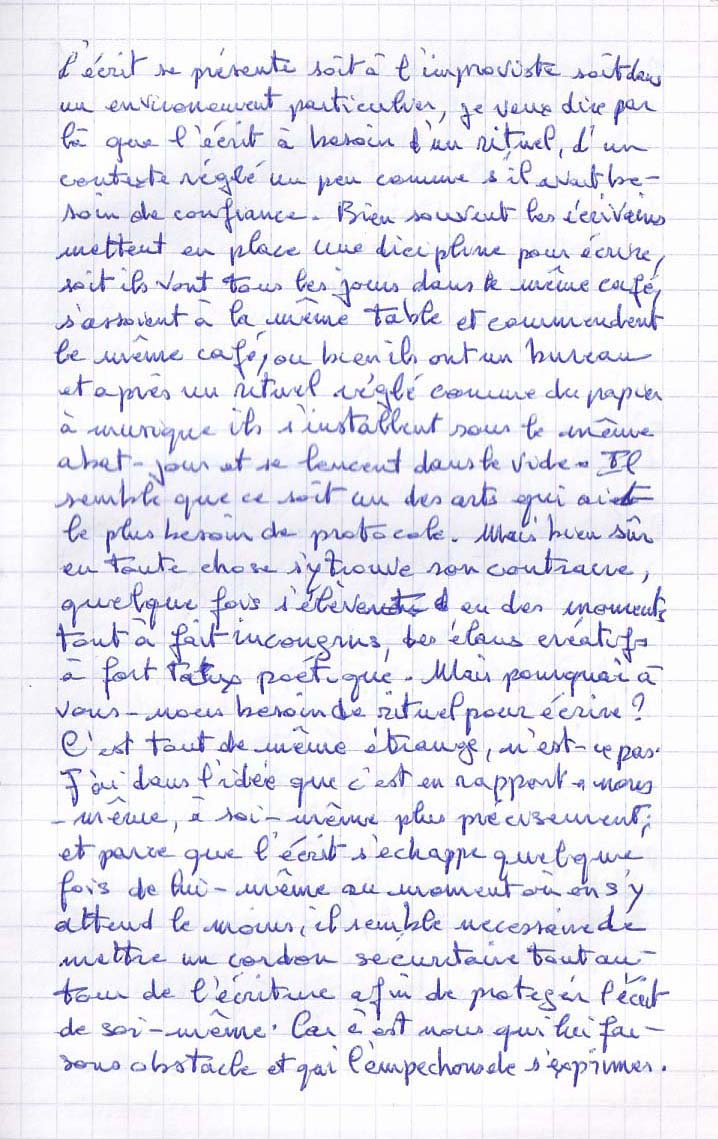 L'écrit se présente soit à l'improviste soit dans
un environement particulier, je veux dire par
là que l'écrit à besoin d'un rituel, d'un
contexte réglé un peu comme s'il avait be-
soin de confiance. Bien souvent les écrivains
mettent en place une dicipline pour écrire,
soit ils vont tous les jours dans le même café,
s'assoient à la même table et commendent
le même café, ou bien ils ont un bureau
et après un rituel réglé comme du papier
à musique ils s'installent sous le même
abat-jour et se lencent dans le vide. Il
semble que ce soit un des arts qui ait
le plus besoin de protocole. Mais bien sûr
en toute chose s'y trouve son contraire,
quelque fois s'élèvent en des moments
tout à fait incongrus, des élans créatifs
à fort taux poétique. Mais pourquoi à
vous-nous besoin de rituel pour écrire ?
C'est tout de même étrange, n'est-ce pas.
J'ai dans l'idée que c'est en rapport à nous
-même, à soi-même plus précisement;
et parce que l'écrit s'echappe quelque
fois de lui-même au moment où on s'y
attend le moins, il semble necessaire de
mettre un cordon sécuritaire tout au-
tour de l'écriture afin de protéger l'écrit
de soi-même. Car c'est nous qui lui fai-
sons obstacle et qui l'empechons de s'exprimer.